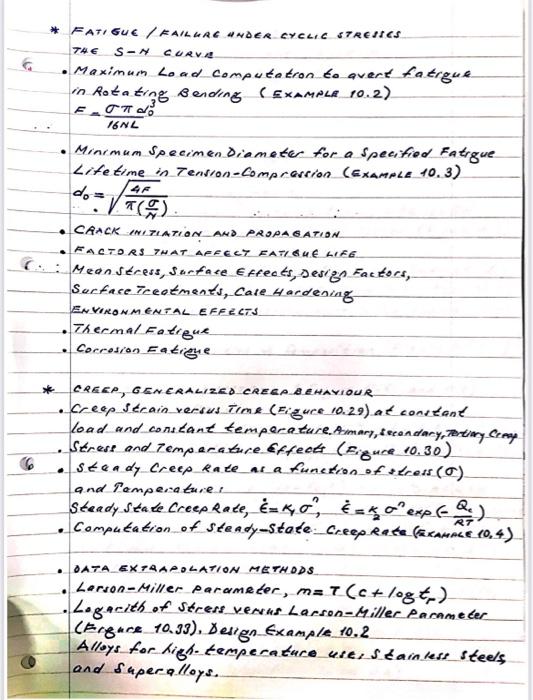 * FATIGUE / FAILURE UNDER CYCLIC STRESSES
THE S-N CURVE
• Maximum Load Computation to avert fatigue
in Rotating Bending (EXAMPLE 10.2)
F = σπd₀³ / 16NL
• Minimum Specimen Diameter for a Specified Fatigue
Lifetime in Tension-Compression (EXAMPLE 10.3)
d₀ = √(4F / π(σ/N)).
• CRACK INITIATION AND PROPAGATION
• FACTORS THAT AFFECT FATIGUE LIFE
Mean Stress, Surface Effects, Design Factors,
Surface Treatments, Case Hardening
ENVIRONMENTAL EFFECTS
• Thermal Fatigue
• Corrosion Fatigue
* CREEP, GENERALIZED CREEP BEHAVIOUR
• Creep Strain versus Time (Figure 10.29) at constant
load and constant temperature. Primary, Secondary, Tertiary Creep
• Stress and Temperature Effects (Figure 10.30)
• Steady Creep Rate as a function of stress (σ)
and Temperature:
Steady State Creep Rate, ε̇ = K₁σⁿ, ε̇ = K₂σⁿ exp(- Qc/RT)
• Computation of Steady-State Creep Rate (EXAMPLE 10.4)
• DATA EXTRAPOLATION METHODS
• Larson-Miller parameter, m = T (C + log tᵣ)
• Logarith of Stress versus Larson-Miller Parameter
(Figure 10.33), Design Example 10.2
Alloys for high-temperature use, Stainless Steels
and Superalloys.